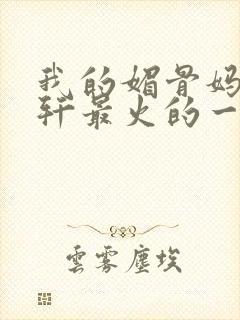 我的媚骨妈
轩最火的一
雲雾塵埃